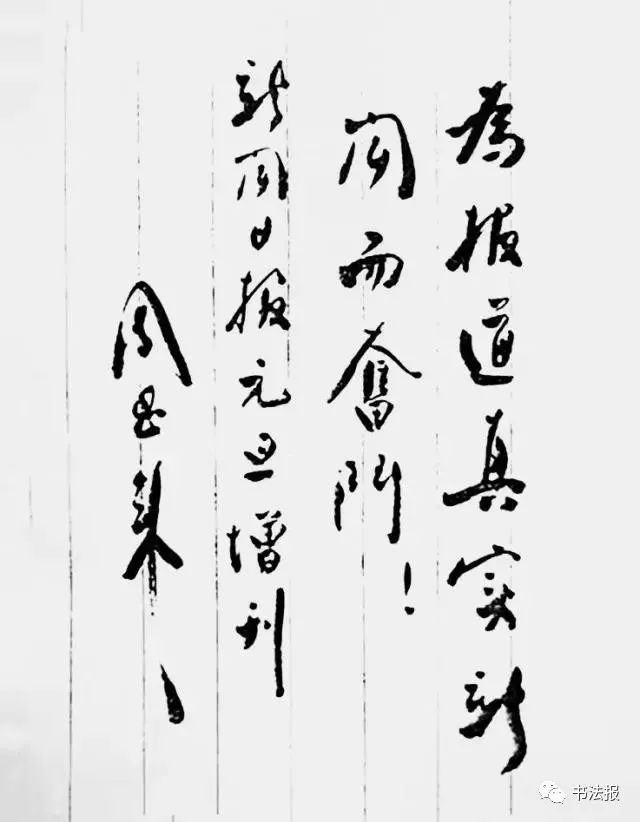 為报道真实新
闻而奮鬥！
新闻日报元旦增刊
周恩来
书法报